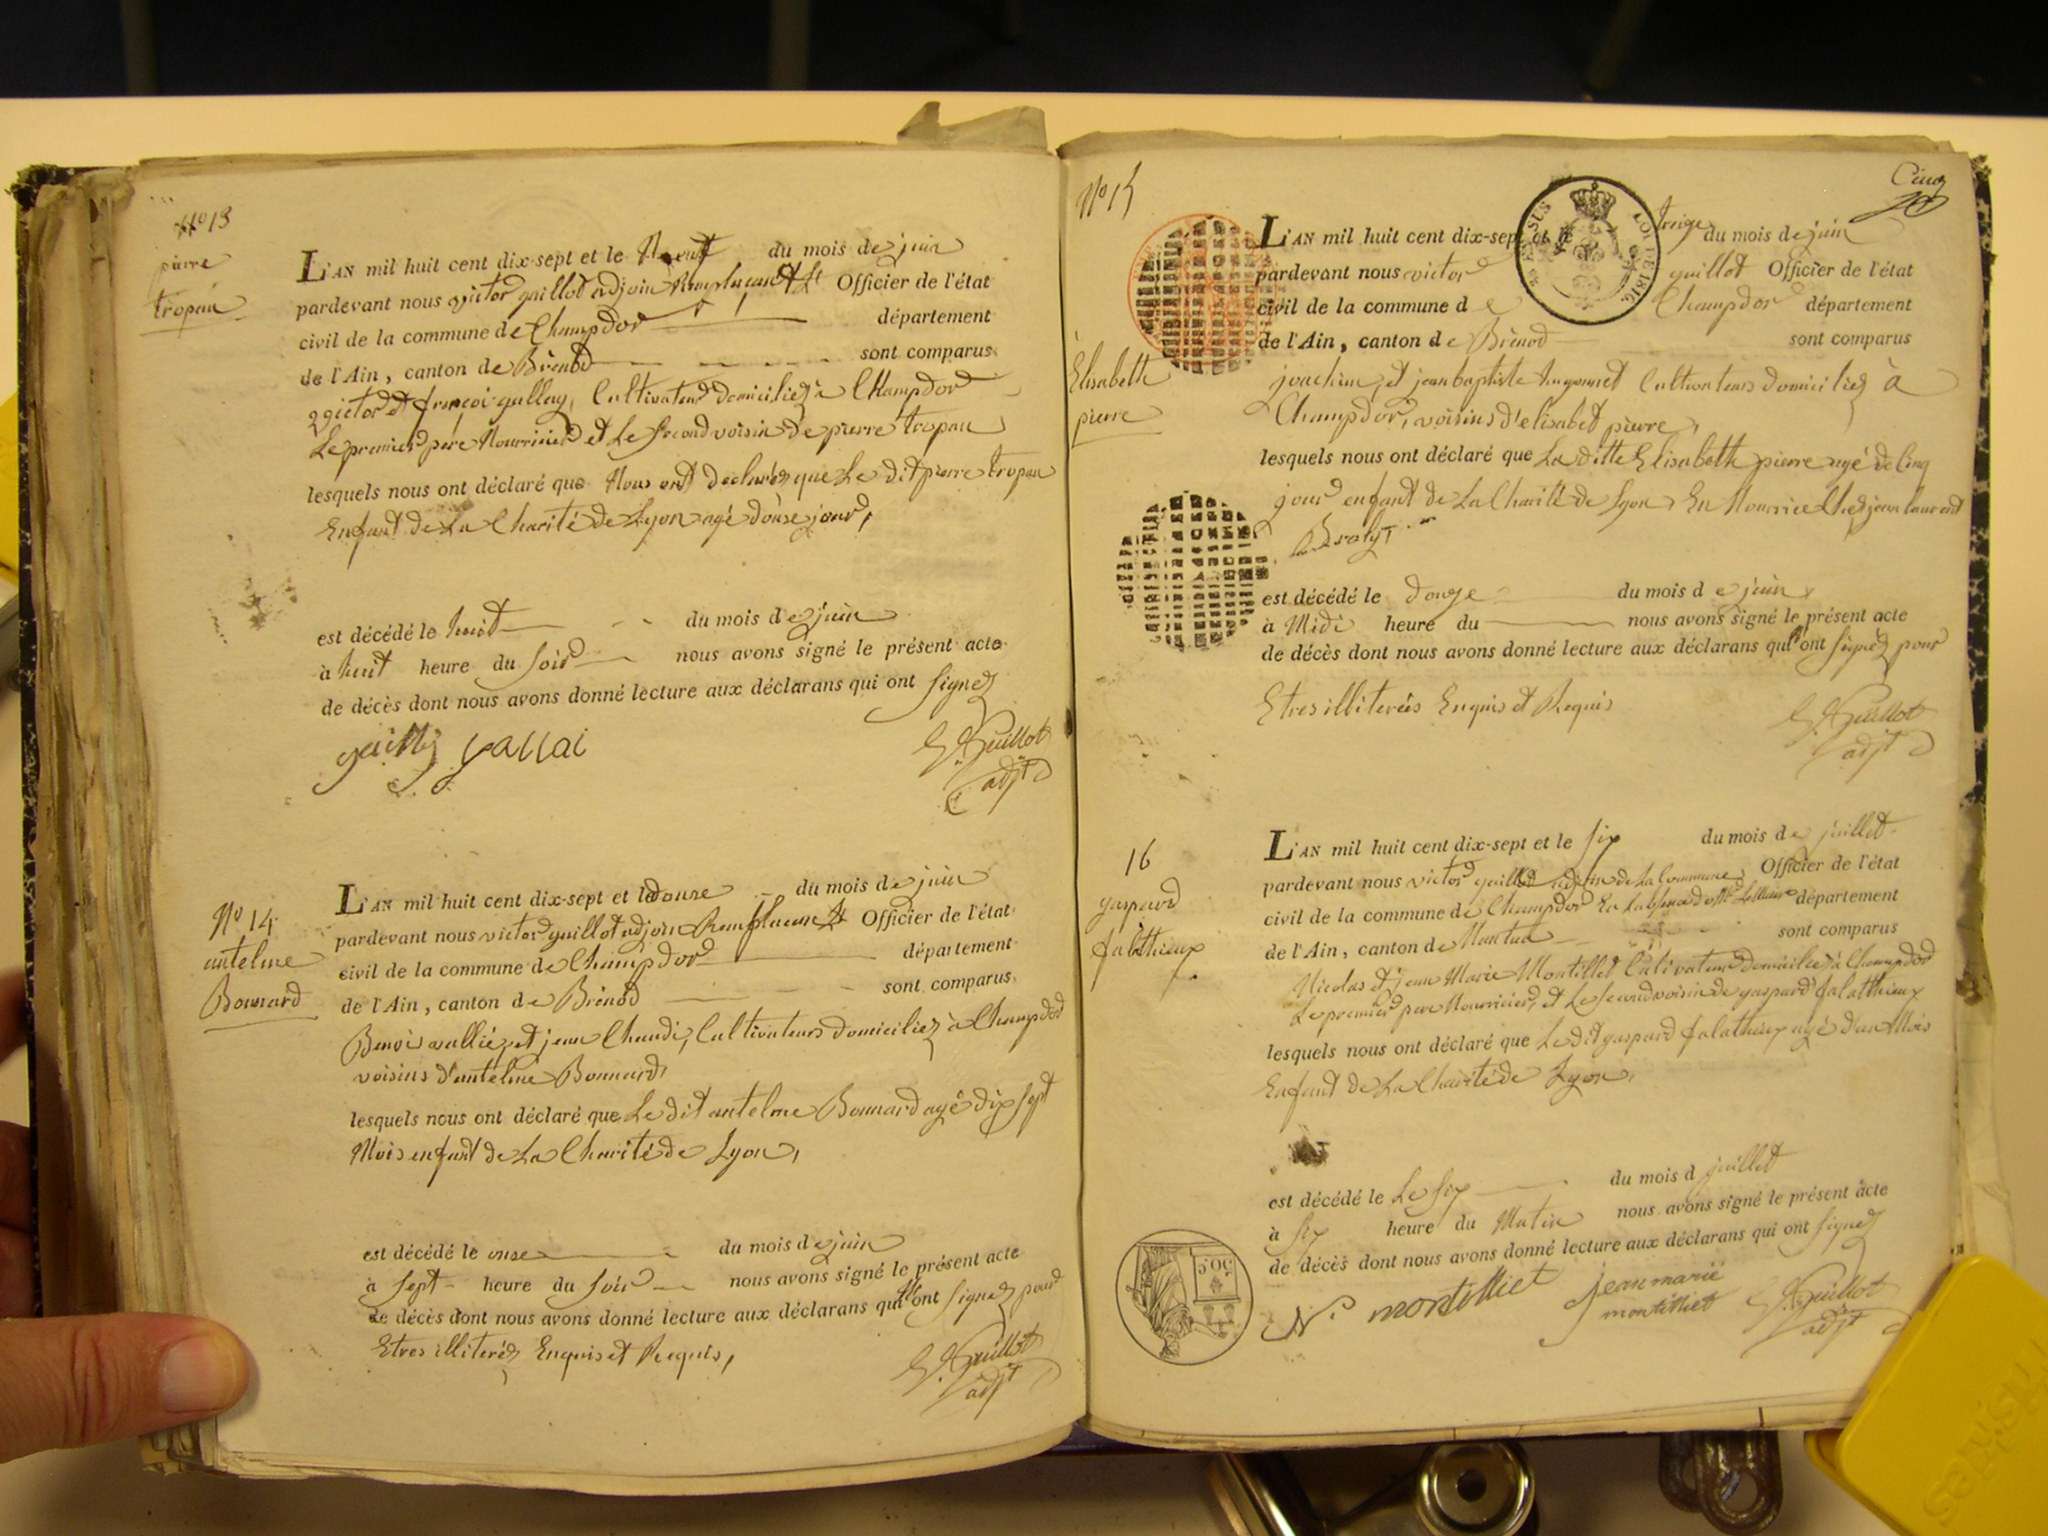 N° 13
pierre
tropan
L'AN mil huit cent dix-sept et le Neuf du mois de juin
pardevant nous victor guillot adjoin Remplacant Lt Officier de l'état
civil de la commune de Champdor département
de l'Ain, canton de Brénod sont comparus
victor et françoi gallay, Cultivateurs domiciliez à Champdor
Le premier père Nourricier et Le second voisin de pierre tropan
lesquels nous ont déclaré que Nous ont declarés que Le dit pierre tropan
Enfant de La Charité de Lyon agé douse jours,
est décédé le huit du mois de juin
à huit heure du soir nous avons signé le présent acte
de décès dont nous avons donné lecture aux déclarans qui ont signez
gallai
Guillot
adjt
N° 14
antelme
Bonnard
L'AN mil huit cent dix-sept et le douse du mois de juin
pardevant nous victor guillot adjoin Remplacant Officier de l'état
civil de la commune de Champdor département
de l'Ain, canton de Brénod sont comparus
Benoi vallié, et jean Chaudi, Cultivateurs domiciliez à Champdor
voisins d'antelme Bonnard,
lesquels nous ont déclaré que Le dit antelme Bonnard agé dix sept
Mois enfant de La Charité de Lyon,
est décédé le onse du mois de juin
à sept heure du soir nous avons signé le présent acte
de décès dont nous avons donné lecture aux déclarans qui ont signez pour
Etres illiterés Enquis et Requis,
Guillot
adjt
Cinq
N° 15
Elisabeth
pierre
L'AN mil huit cent dix-sept et le treize du mois de juin
pardevant nous victor guillot Officier de l'état
civil de la commune de Champdor département
de l'Ain, canton de Brénod sont comparus
joachim, et jean baptiste hugonnet Cultivateurs domiciliez à
Champdor, voisins d'elisabet pierre,
lesquels nous ont déclaré que La ditte Elisabeth pierre agé de Cinq
jours enfant de La Charité de Lyon, En Nourrice Chez jean laurent
est décédé le douze du mois de juin
à Midi heure du nous avons signé le présent acte
de décès dont nous avons donné lecture aux déclarans qui ont signéz pour
Etres illiterés Enquis et Requis
Guillot
adjt
16
gaspard
falathieux
L'AN mil huit cent dix-sept et le six du mois de juillet
pardevant nous victor guillot adjoin de La Commune Officier de l'état
civil de la commune de Champdor En Labsence de Mr Le Maire département
de l'Ain, canton de Nantua sont comparus
Nicolas et jean Marie Montillet Cultivateurs domiciliez à Champdor
Le premier pere Nourricier, et Le second voisin de gaspard falathieux
lesquels nous ont déclaré que Le dit gaspard falathieux agé d'un Mois
Enfant de La Charité de Lyon,
est décédé le Le six du mois d juillet
à six heure du Matin nous avons signé le présent acte
de décès dont nous avons donné lecture aux déclarans qui ont signez
N. montilliet jean marie
montilliet
Guillot
adjt
50 C